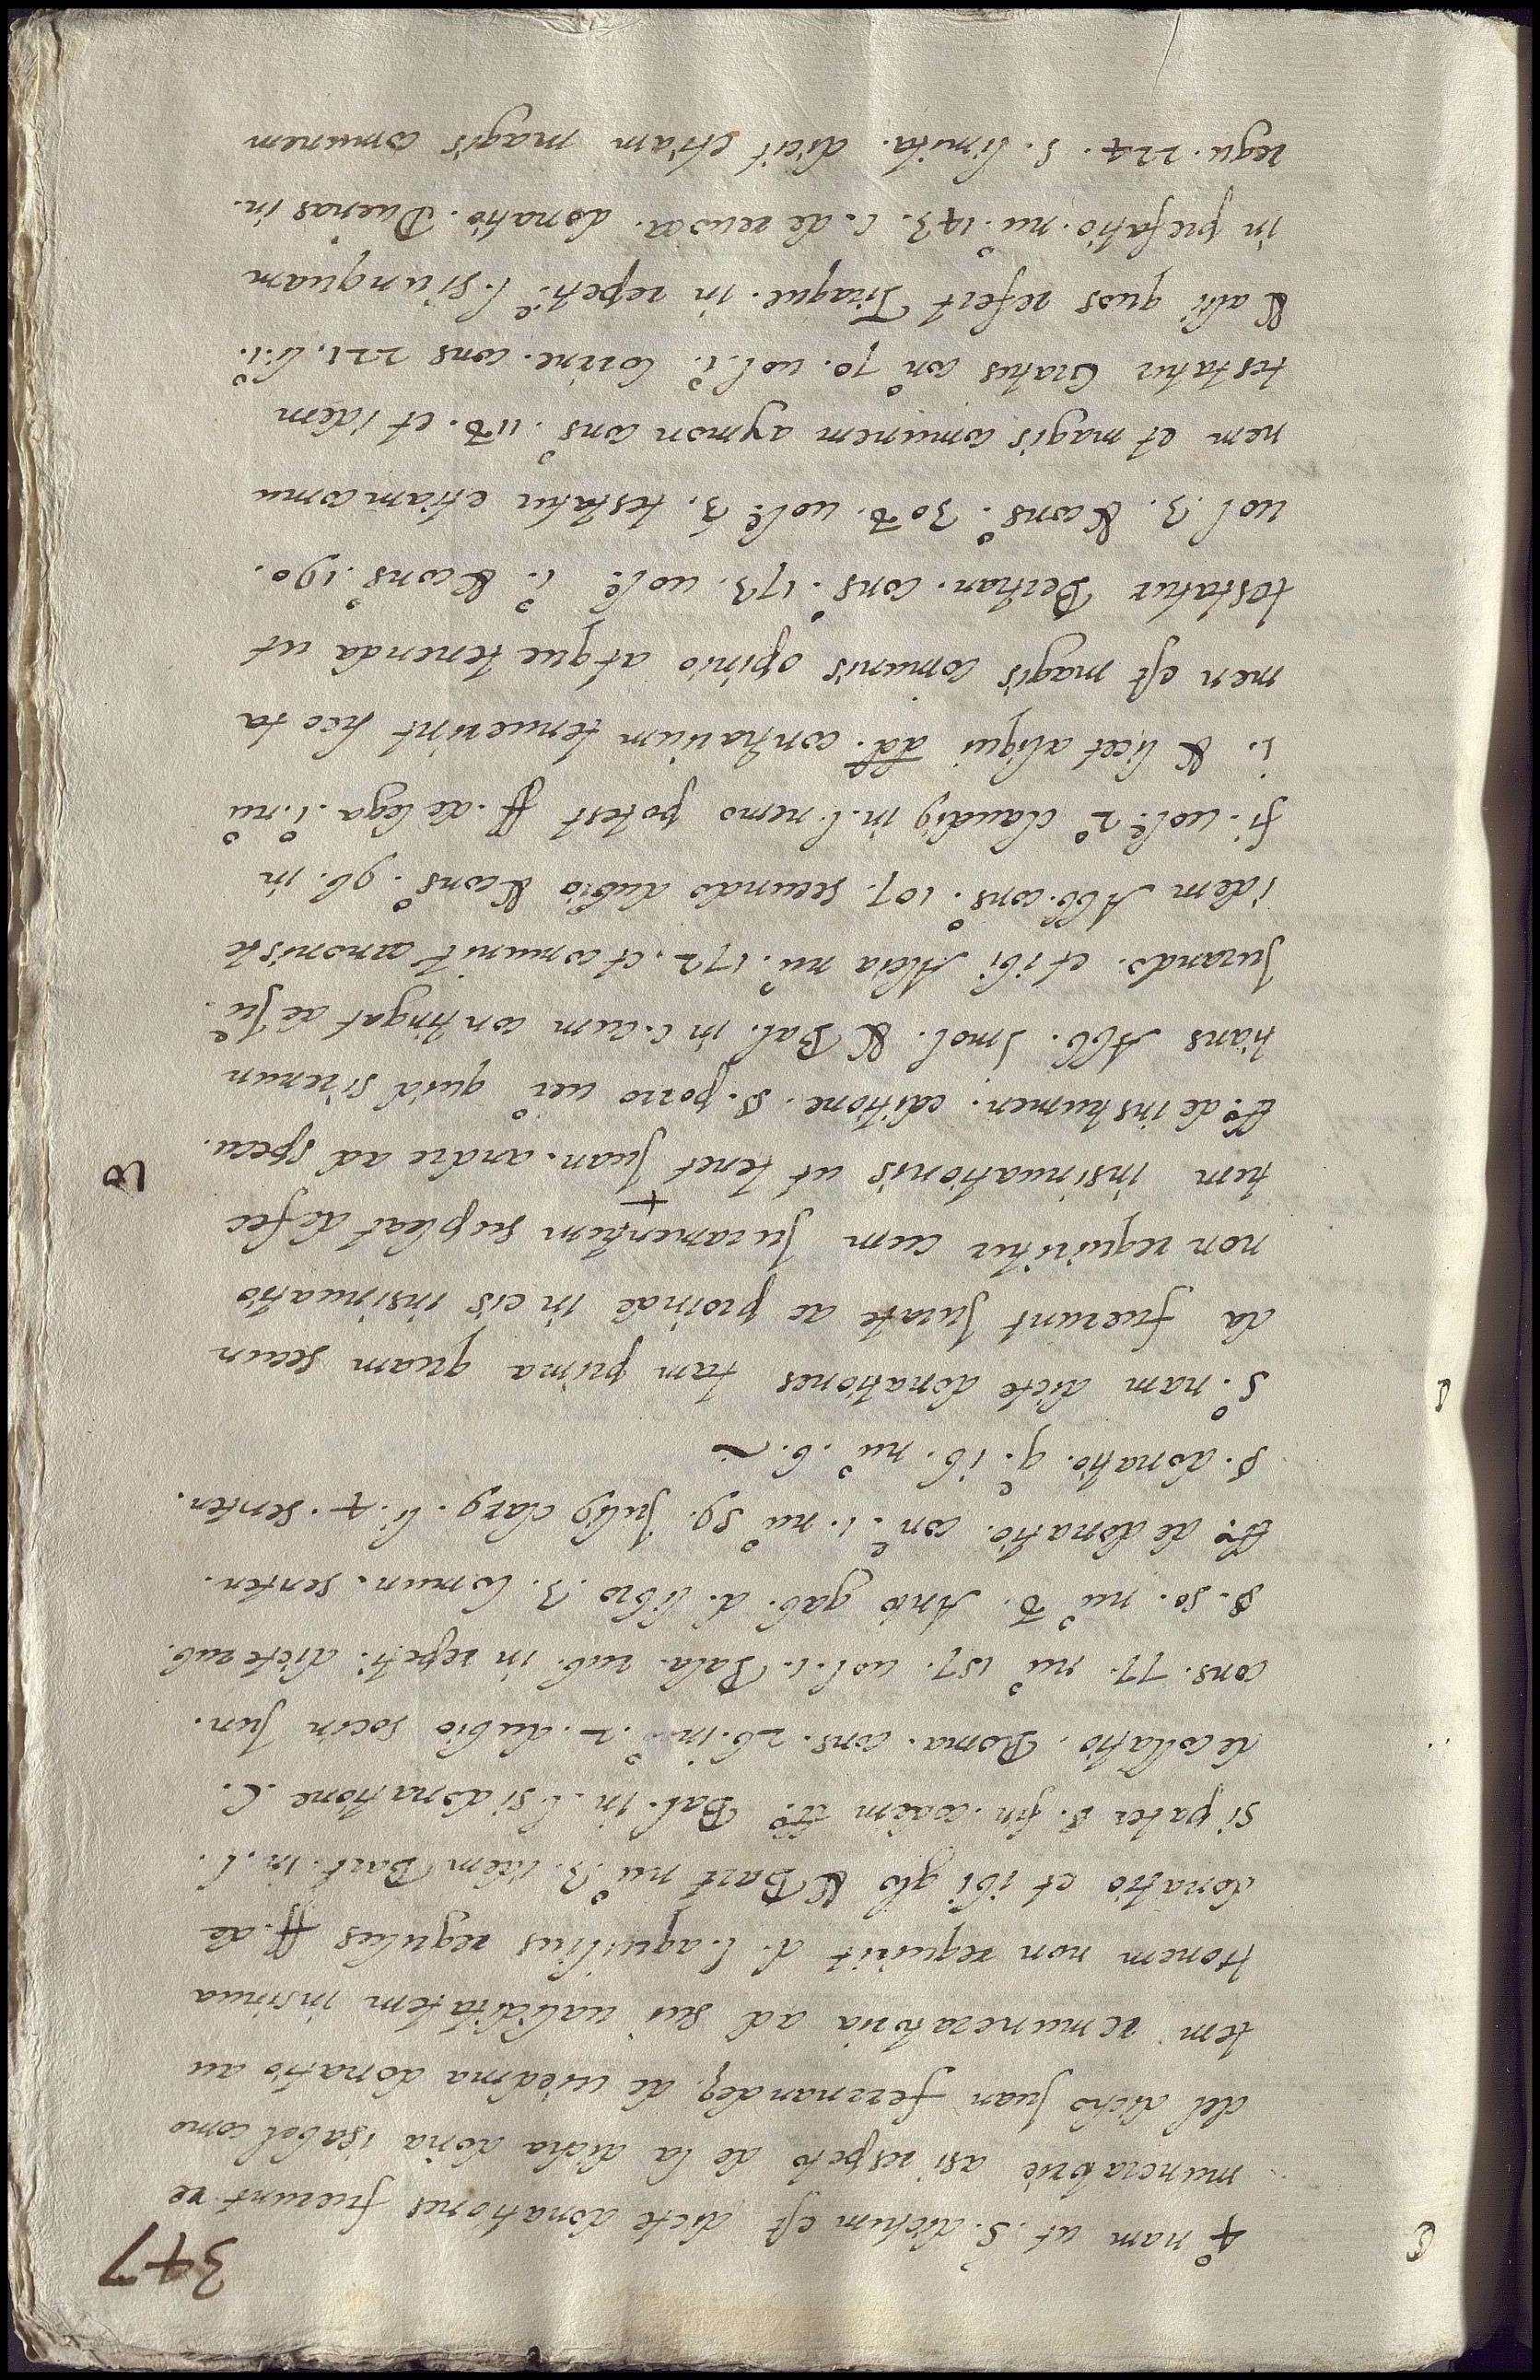 347
4º nam ut. S. dictum est dicte donationes fuerunt re
muneratorie asi respeto de la dicha doña isabel como
del dicho juan ferrnandez de uiedma donatio au
tem remuneratoria ad sui ualiditatem insinua
tionem non requirit d. l. aquilius regulus ff. de
donatio et ibi glo & Bart nuº 3. idem Bart. in. l.
si pater §. fin. eodem ttº Bal. in. l. si donatione C.
de collatio. Roma. cons. 26. in. 2. dubio socin Jun.
cons. 77. nuº 157. uol. 1. Bala. rub. in repeti. dicte rub.
§. 50. nuº 8. Antº gab. d. libro 3. Comun. senten.
ttº de donatio. conº 1. nuº 59. Juliº clarº. li. 4. senten.
§. donatio. q. 16. nuº 6.
5º nam dicte donationes tam prima quam secun
da fuerunt Jurate ac proinde in eis insinuatio
non requiritur cum Juramentum supleat defec
tum insinuationis ut tenet Juan. andre ad specu.
ttº de instrumen. editione. §. porro uerº quid si renun
tians Abb. Imol. & Bal. in c. cum contingat de Ju
Jurando. et ibi Alcia nuº 172. et comunitº canoniste
idem Abb. consº. 107. secundo dubio & consº. 96. in
fi. uolº 2º claudiº in. l. nemo potest ff. de lega. 1. nuº
1. & licet aliqui ad contrarium tenuerint hec ta
men est magis comunis opinio atque tenenda ut
testatur Bertran. consº. 173. uolº 1º & consº. 190.
uol. 3. & consº. 308. uolº 3. testatur etiam comu
nem et magis comunem aymon consº. 118. et idem
testatur Gratus conº 70. uol. 1º. Corne. cons 221. li. 1º.
& alii quos refert Tiraque. in repetiº. l. si unquam
in prefatio. nuº 143. C. de reuoca. donatio. Dueñas in.
regu. 224. 5. limita. dicit etiam magis comunem